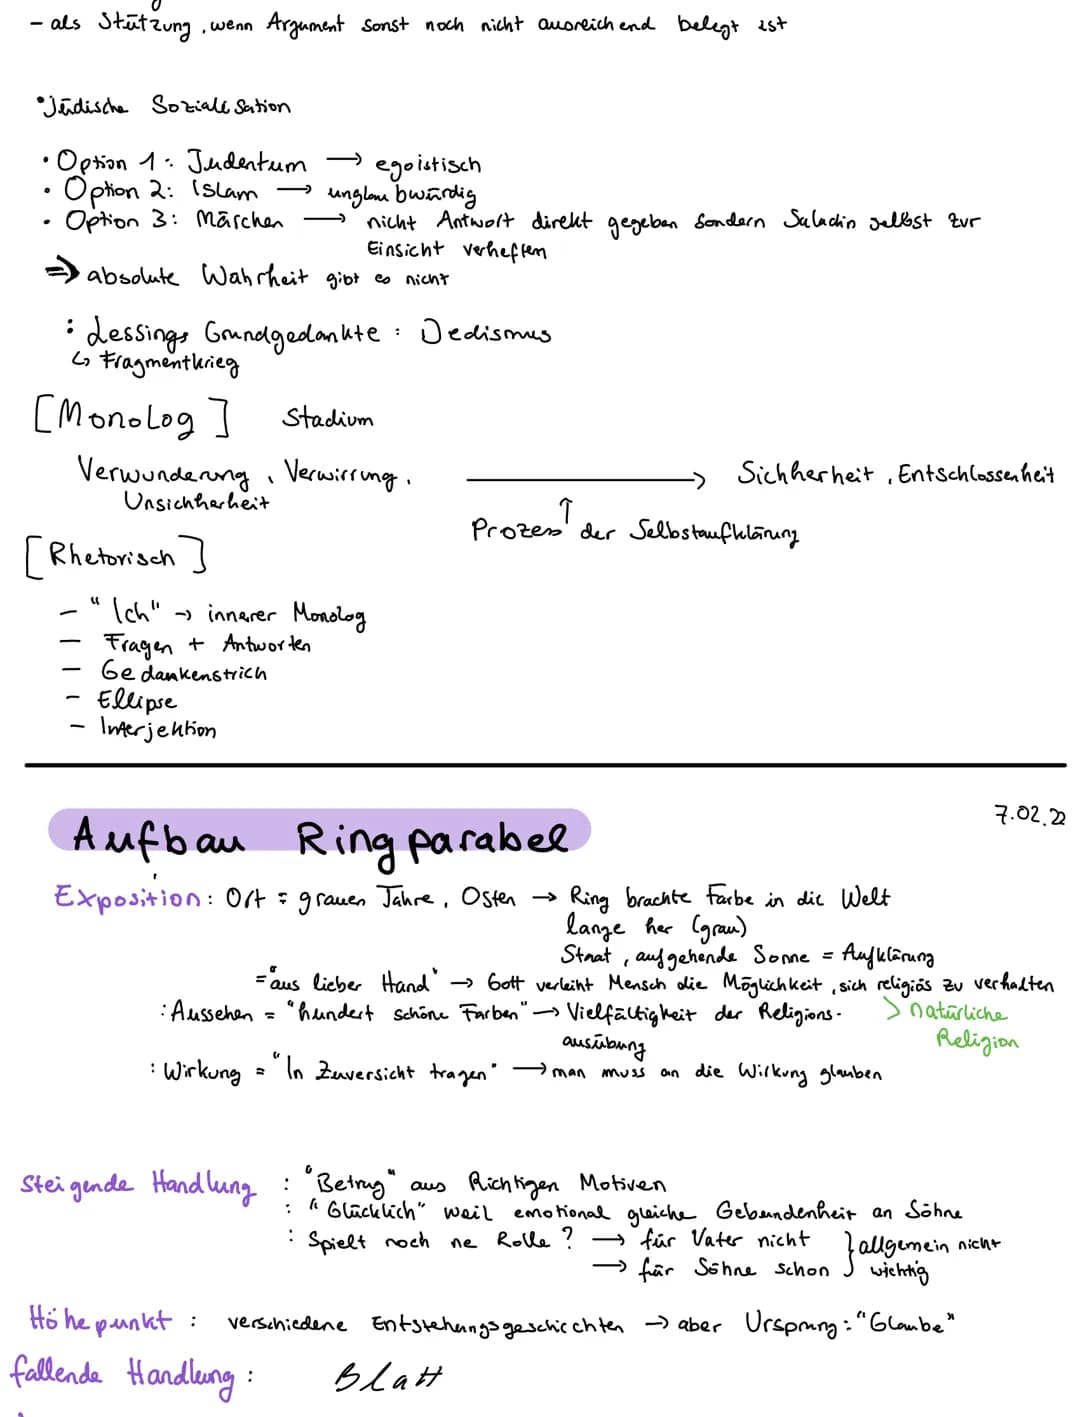 - als Stützung, wenn Argument sonst noch nicht ausreichend belegt ist
• Jüdische Sozialisation
• Option 1: Judentum → egoistisch
• Option 2: Islam → unglaubwürdig
• Option 3: Märchen → nicht Antwort direkt gegeben sondern Saladin selbst zur
Einsicht verhelfen
⇒ absolute Wahrheit gibt es nicht
: Lessings Grundgedankte : Dedismus
↳ Fragmentkrieg
[Monolog] Stadium
Verwunderung, Verwirrung, → Sichherheit, Entschlossenheit
Unsichherheit
↑
Prozess der Selbstaufklärung
[Rhetorisch]
- "Ich" → innerer Monolog
- Fragen + Antworten
- Gedankenstrich
- Ellipse
- Interjektion
7.02.22
Aufbau Ringparabel
Exposition: Ort = grauen Jahre, Osten → Ring brachte Farbe in die Welt
lange her (grau)
Staat, aufgehende Sonne = Aufklärung
= "aus lieber Hand" → Gott verleiht Mensch die Möglichkeit, sich religiös zu verhalten
: Aussehen = "hundert schöne Farben" → Vielfältigkeit der Religions- > natürliche
ausübung Religion
: Wirkung = "In Zuversicht tragen" → man muss an die Wirkung glauben
Steigende Handlung : "Betrug" aus Richtigen Motiven
: "Glücklich" weil emotional gleiche Gebundenheit an Söhne
: Spielt noch ne Rolle? → für Vater nicht } allgemein nicht
→ für Söhne schon } wichtig
Höhepunkt : verschiedene Entstehungsgeschichten → aber Ursprung: "Glaube"
fallende Handlung : Blatt